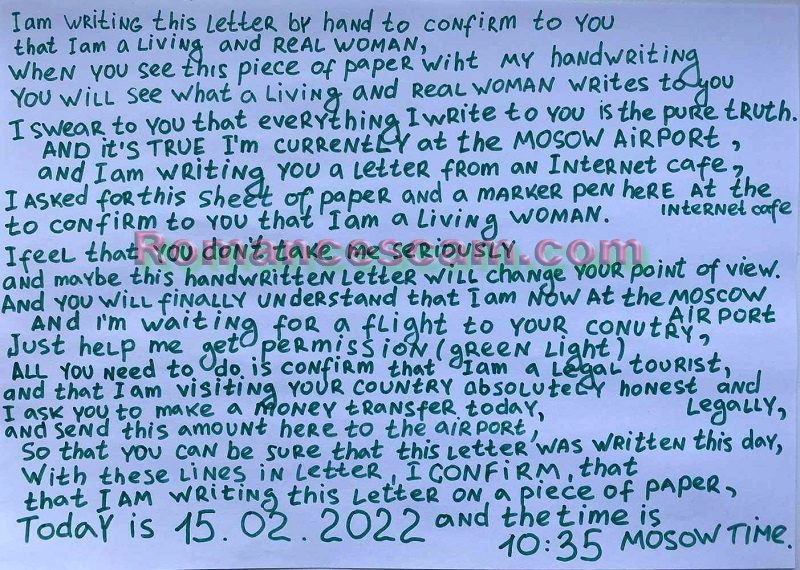 I am writing this letter by hand to confirm to you
that I am a living and real woman,
When you see this piece of paper wiht my handwriting
You will see what a living and real woman writes to you
I swear to you that everything I write to you is the pure truth.
And it's true I'm currently at the Mosow Airport,
and I am writing you a letter from an Internet cafe,
I asked for this sheet of paper and a marker pen here at the
Internet cafe
to confirm to you that I am a living woman.
I feel that you don't take me seriously
Romancescam.com
and maybe this handwritten letter will change your point of view.
And you will finally understand that I am now at the Moscow
Airport
And I'm waiting for a flight to your conutry,
Just help me get permission (green light)
All you need to do is confirm that I am a legal tourist,
and that I am visiting your country absolutely honest and
Legally,
I ask you to make a money transfer today,
and send this amount here to the airport,
So that you can be sure that this letter was written this day,
With these lines in letter, I confirm, that
that I am writing this letter on a piece of paper,
Today is 15.02.2022 and the time is
10:35 Mosow time.